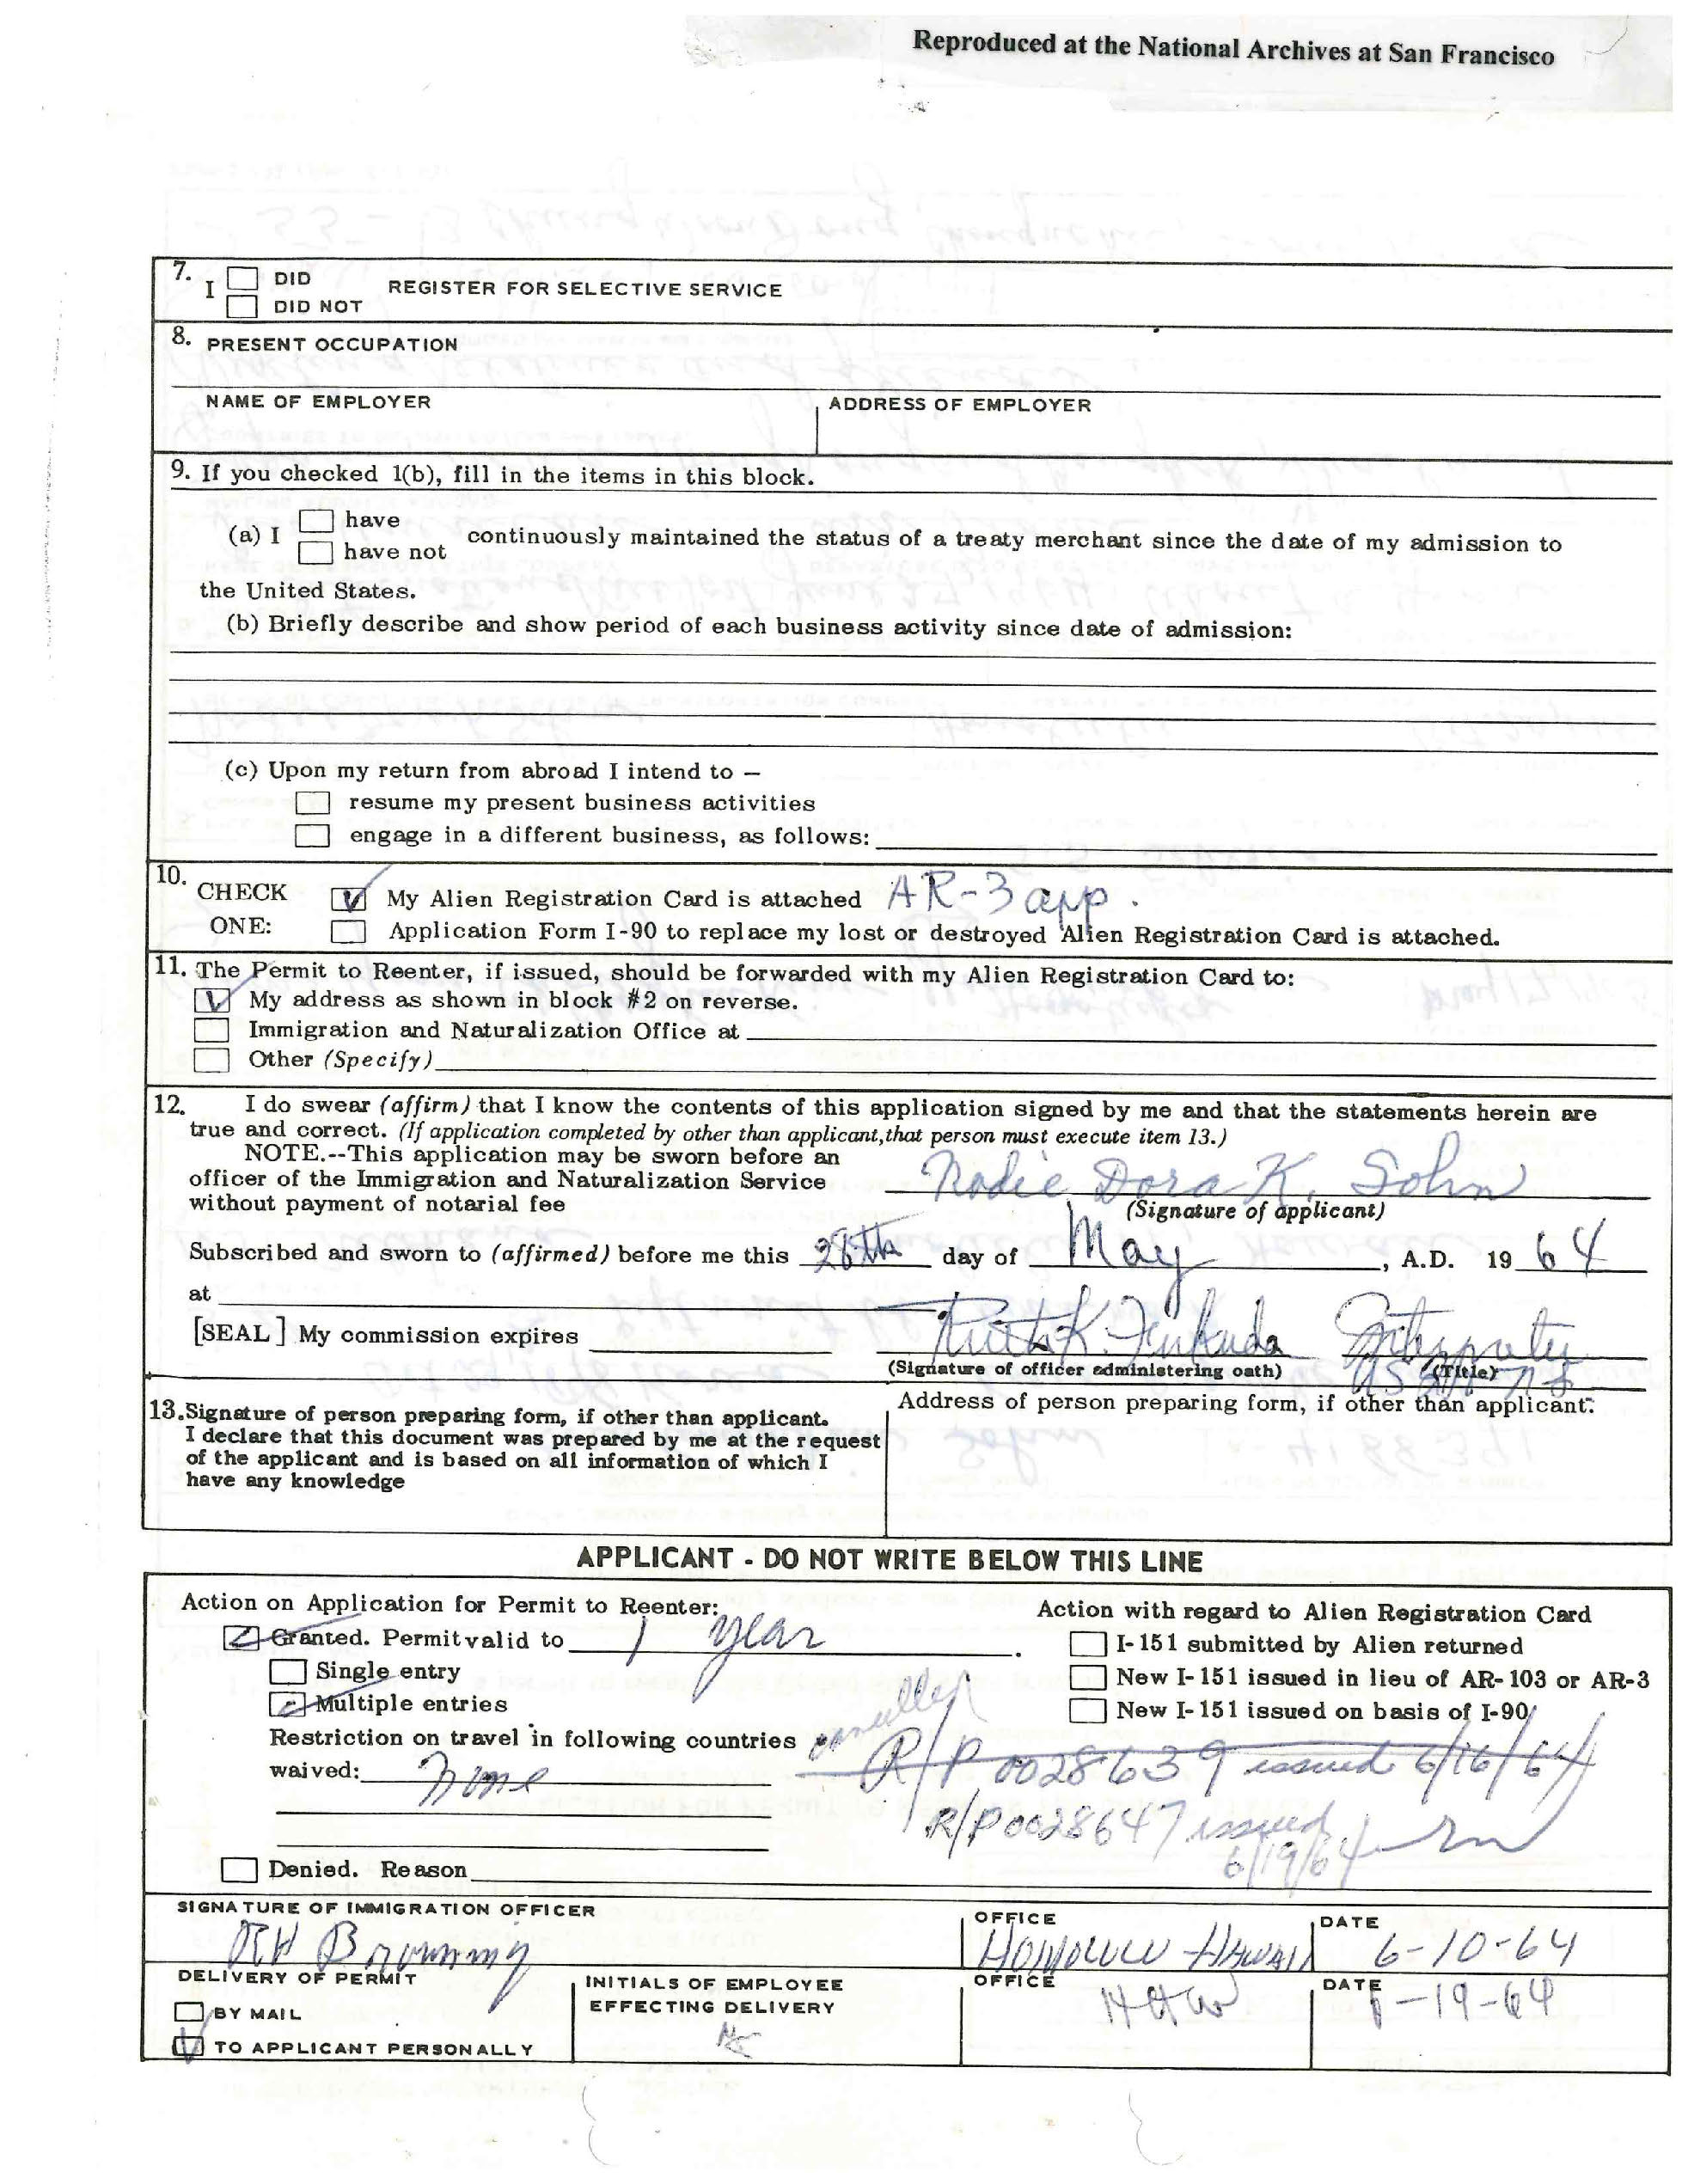 Reproduced at the National Archives at San Francisco
7. I DID
DID NOT
REGISTER FOR SELECTIVE SERVICE
8. PRESENT OCCUPATION
NAME OF EMPLOYER ADDRESS OF EMPLOYER
9. If you checked 1(b), fill in the items in this block.
(a) I have
have not
continuously maintained the status of a treaty merchant since the date of my admission to
the United States.
(b) Briefly describe and show period of each business activity since date of admission:
(c) Upon my return from abroad I intend to —
resume my present business activities
engage in a different business, as follows:
10. CHECK My Alien Registration Card is attached AR-3 app.
ONE: Application Form I-90 to replace my lost or destroyed Alien Registration Card is attached.
11. The Permit to Reenter, if issued, should be forwarded with my Alien Registration Card to:
My address as shown in block #2 on reverse.
Immigration and Naturalization Office at
Other (Specify)
12. I do swear (affirm) that I know the contents of this application signed by me and that the statements herein are
true and correct. (If application completed by other than applicant, that person must execute item 13.)
NOTE.--This application may be sworn before an
officer of the Immigration and Naturalization Service
without payment of notarial fee
Nodie Dora K. Sohn
(Signature of applicant)
Subscribed and sworn to (affirmed) before me this 28th day of May, A.D. 19 64
at
[SEAL] My commission expires
K. Fukuda Interpreter
(Signature of officer administering oath) (Title)
13. Signature of person preparing form, if other than applicant.
I declare that this document was prepared by me at the request
of the applicant and is based on all information of which I
have any knowledge
Address of person preparing form, if other than applicant:
APPLICANT - DO NOT WRITE BELOW THIS LINE
Action on Application for Permit to Reenter:
Granted. Permit valid to 1 year.
Single entry
Multiple entries
Restriction on travel in following countries
waived: None
Denied. Reason
Action with regard to Alien Registration Card
I-151 submitted by Alien returned
New I-151 issued in lieu of AR-103 or AR-3
New I-151 issued on basis of I-90
cancelled
R/P 0028639 issued 6/16/64
R/P 0028647 issued
6/19/64
SIGNATURE OF IMMIGRATION OFFICER OFFICE DATE
Browning HONOLULU HAWAII 6-10-64
DELIVERY OF PERMIT
BY MAIL
TO APPLICANT PERSONALLY
INITIALS OF EMPLOYEE
EFFECTING DELIVERY
OFFICE DATE
HAW 6-19-64